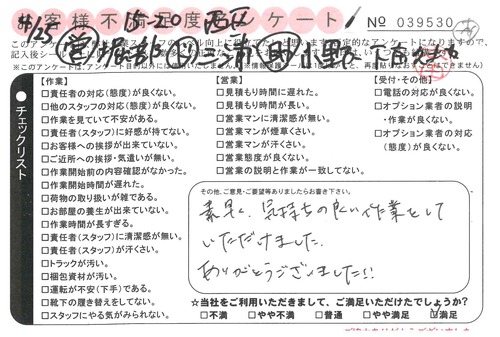 お客様不満足度アンケート
№ 039530
4/25 15-20 西区
【作業】
□責任者の対応(態度)が良くない。
□他のスタッフの対応(態度)が良くない。
□作業を見ていて不安がある。
□責任者(スタッフ)に好感が持てない。
□お客様への挨拶が出来ていない。
□ご近所への挨拶・気遣いが無い。
□作業開始前の内容確認がなかった。
□作業開始時間が遅れた。
□荷物の取り扱いが雑である。
□お部屋の養生が出来ていない。
□作業時間が長すぎる。
□責任者(スタッフ)に清潔感が無い。
□責任者(スタッフ)が汗くさい。
□トラックが汚い。
□梱包資材が汚い。
□運転が不安(下手)である。
□靴下の履き替えをしてない。
□スタッフにやる気がみられない。
【営業】
□見積もり時間に遅れた。
□見積もり時間が長い。
□営業マンに清潔感が無い。
□営業マンが煙草くさい。
□営業マンが汗くさい。
□営業態度が良くない。
□営業の説明と作業が一致してない。
【受付・その他】
□電話の対応が良くない。
□オプション業者の説明
・作業が良くない。
□オプション業者の対応
(態度)が良くない。
チェックリスト
その他、ご意見・ご要望等ありましたらお書き下さい。
素早く、気持ちの良い作業をして
いただけました。
ありがとうございました!!
☆当社をご利用いただきまして、ご満足いただけたでしょうか?
□不満 □やや不満 □普通 □やや満足 ☑満足
ご協力ありがとうございました